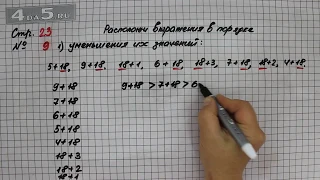 4DA5.RU
Стр. 23 Расположи выражения в порядке
№ 9 1) уменьшения их значений:
5+18, 9+18, 18+1, 6+18, 18+3, 7+18, 18+2, 4+18.
9+18 9+18 > 7+18 > 6
7+18
6+18
5+18
4+18
18+3
18+2
18+1